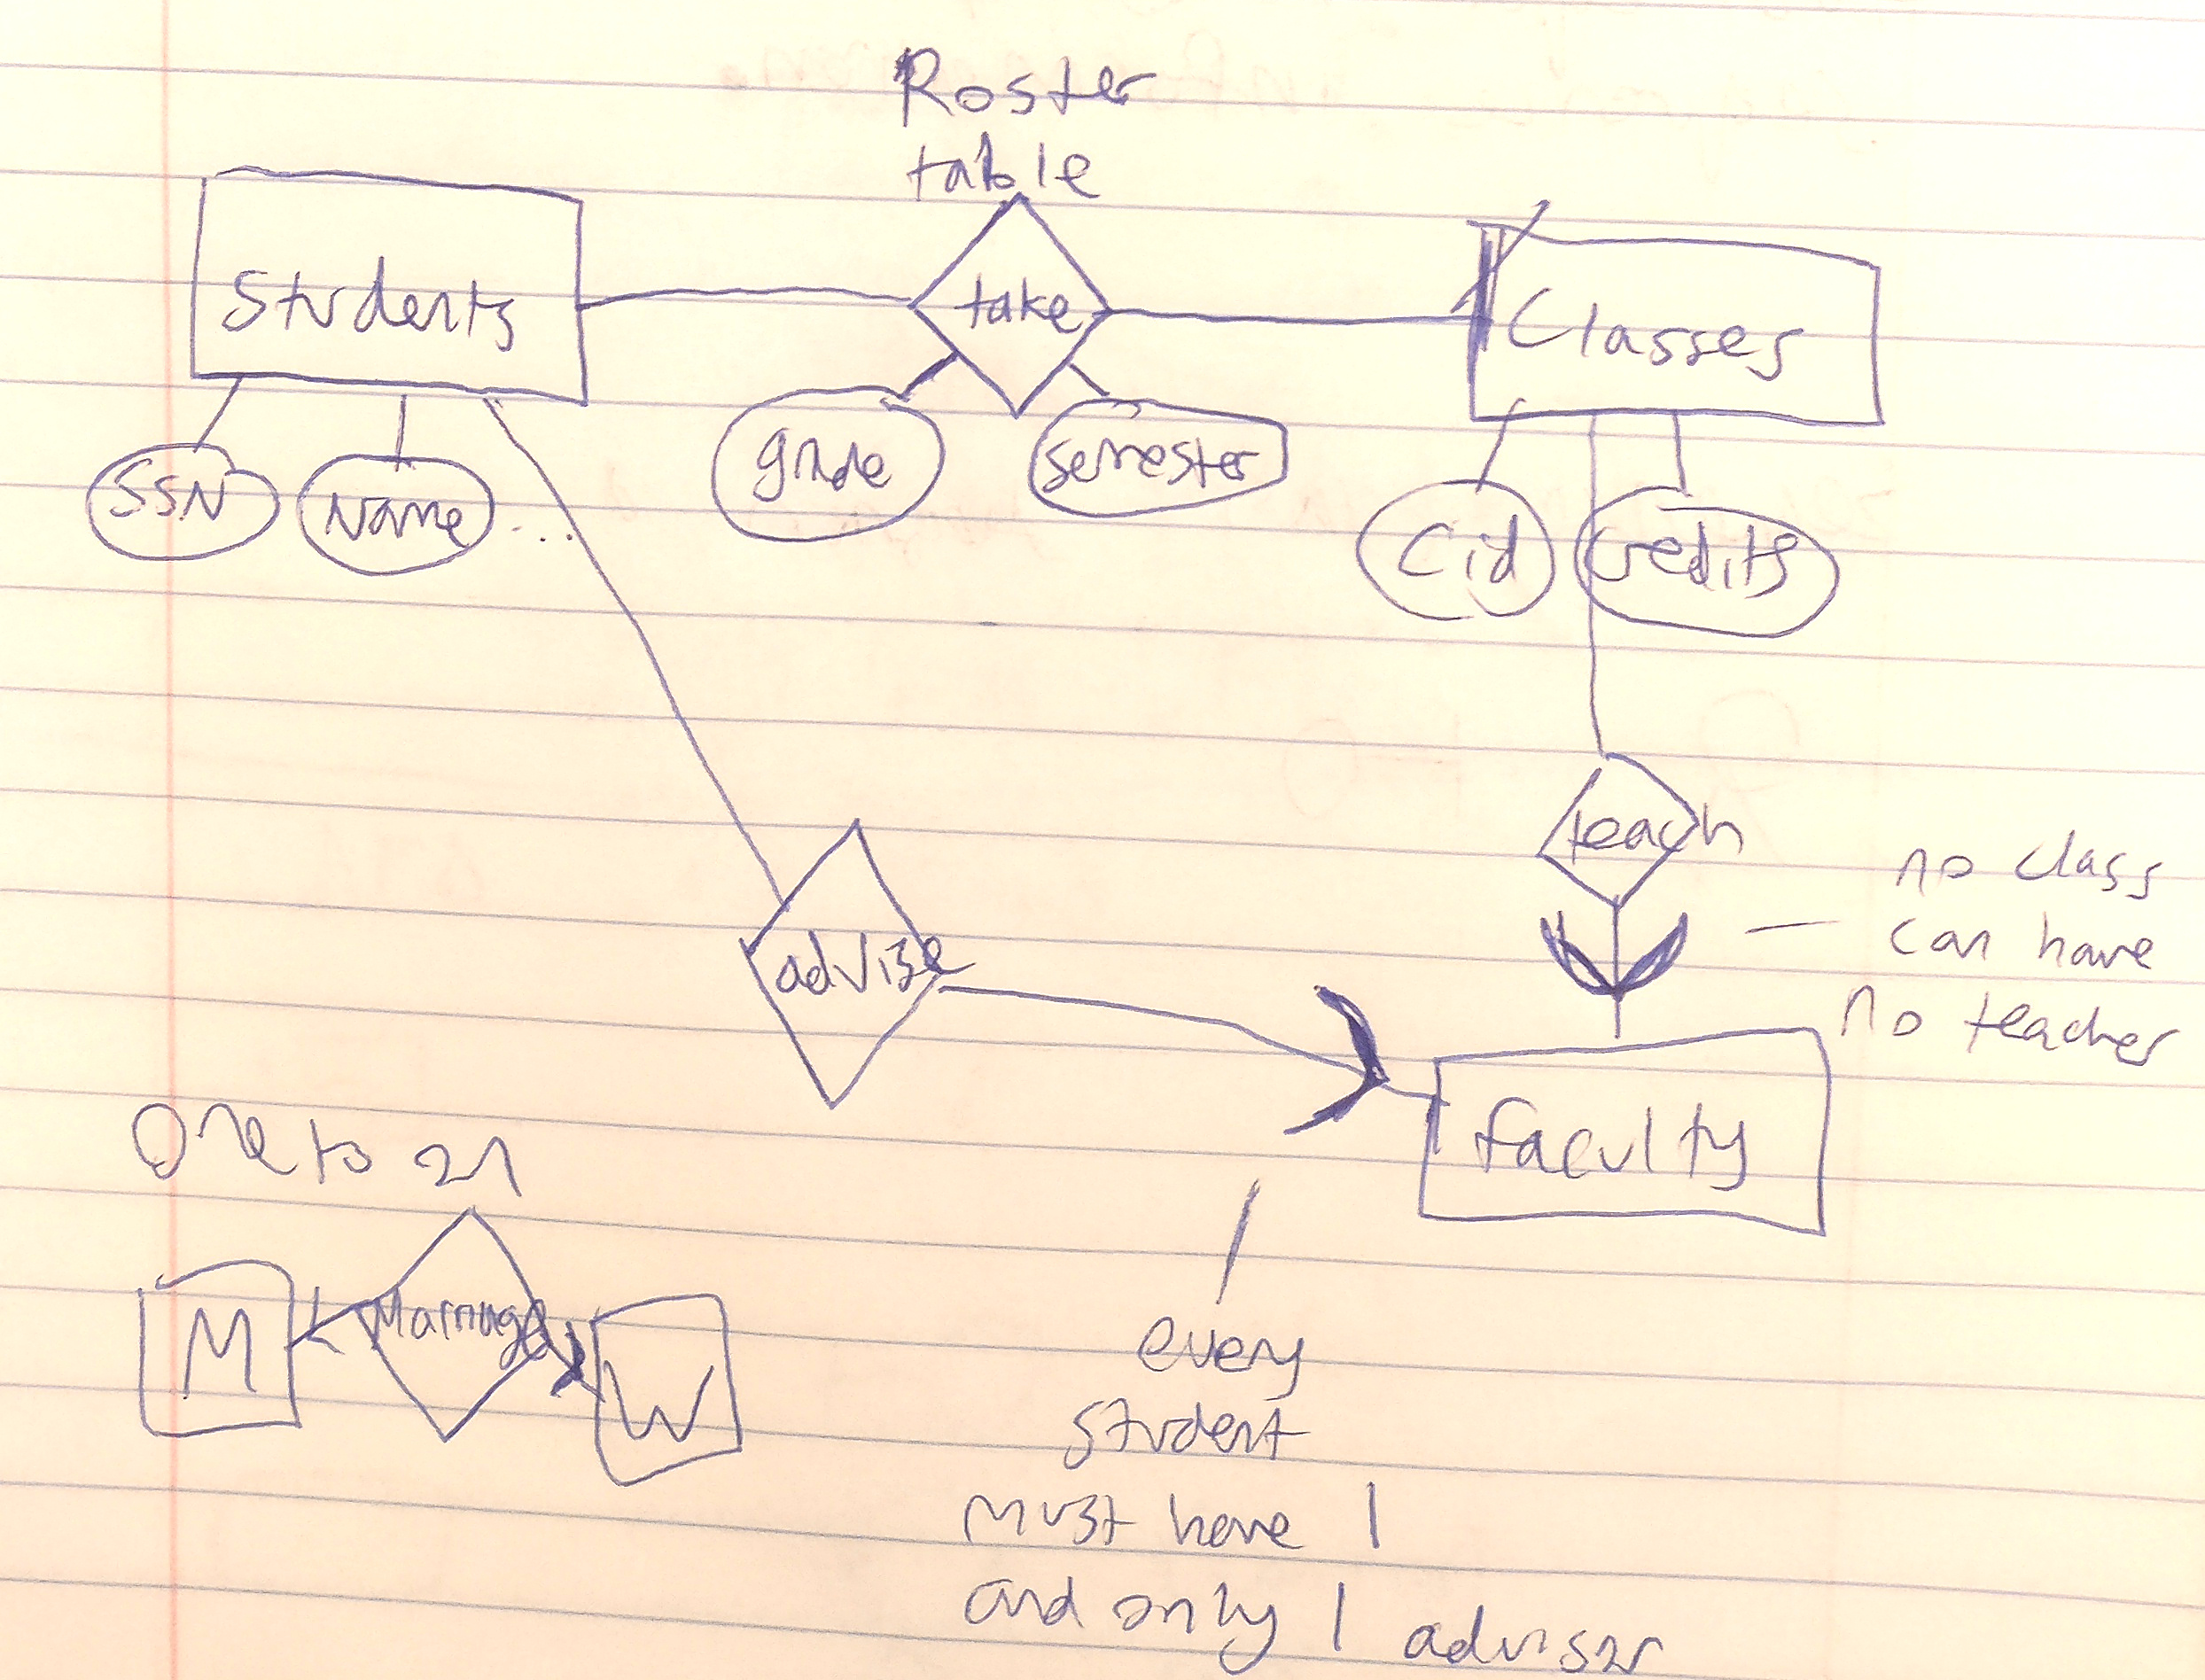 Roster
table
Students
take
Classes
SSN
Name
...
grade
semester
Cid
credits
teach
no class
can have
no teacher
advise
faculty
One to
M
Marriage
W
every
student
must have 1
and only 1 advisor